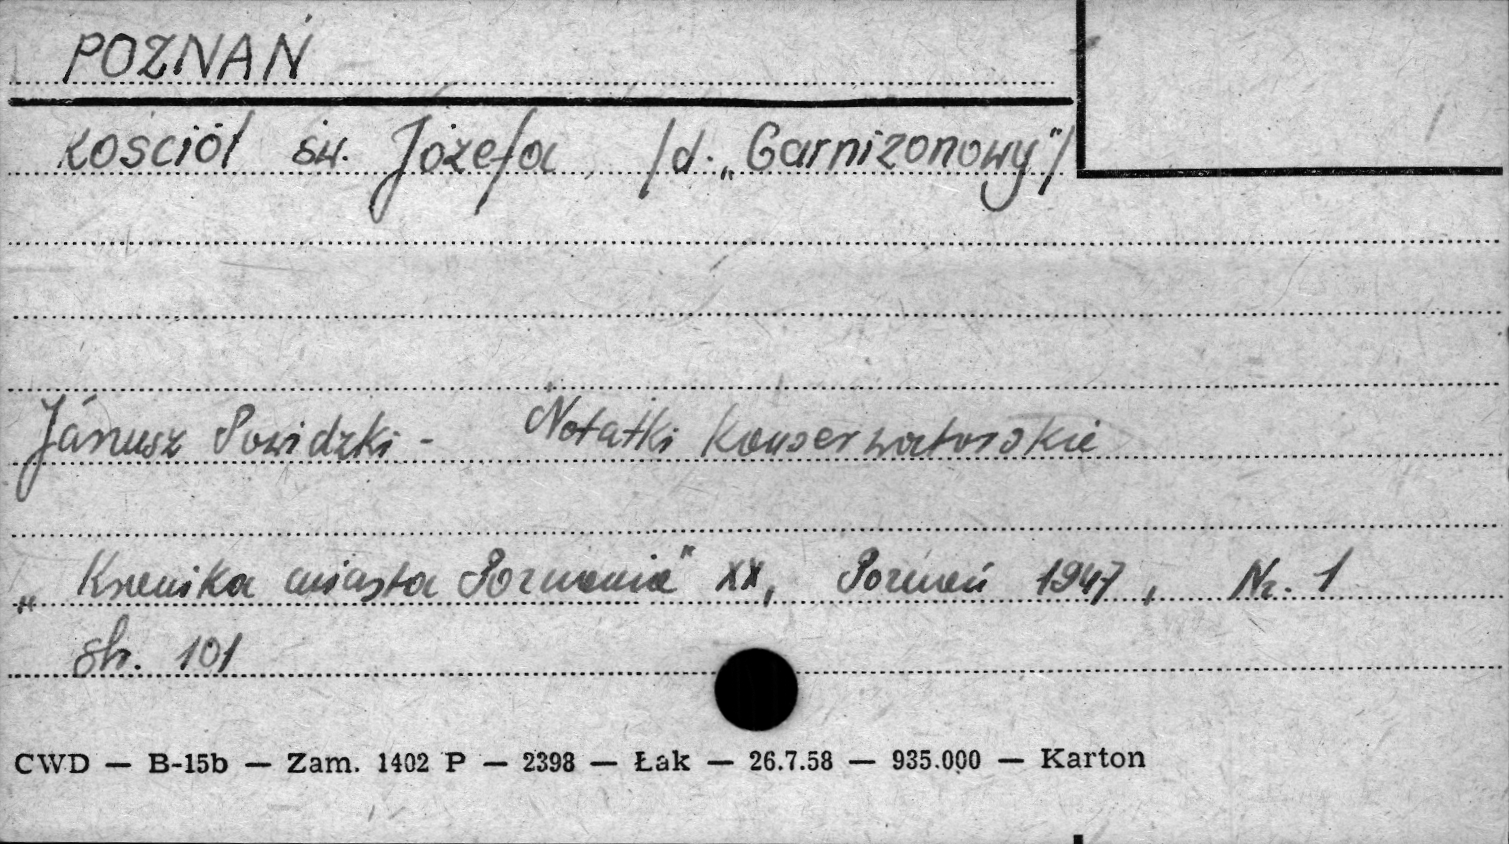 POZNAŃ
Kościół św. Józefa /d. „Garnizonowy"/
Janusz Powidzki - Notatki Konserwatorskie
„Kronika miasta Poznania" XX, Poznań 1947, Nr. 1
str. 101
CWD — B-15b — Zam. 1402 P — 2398 — Łak — 26.7.58 — 935.000 — Karton